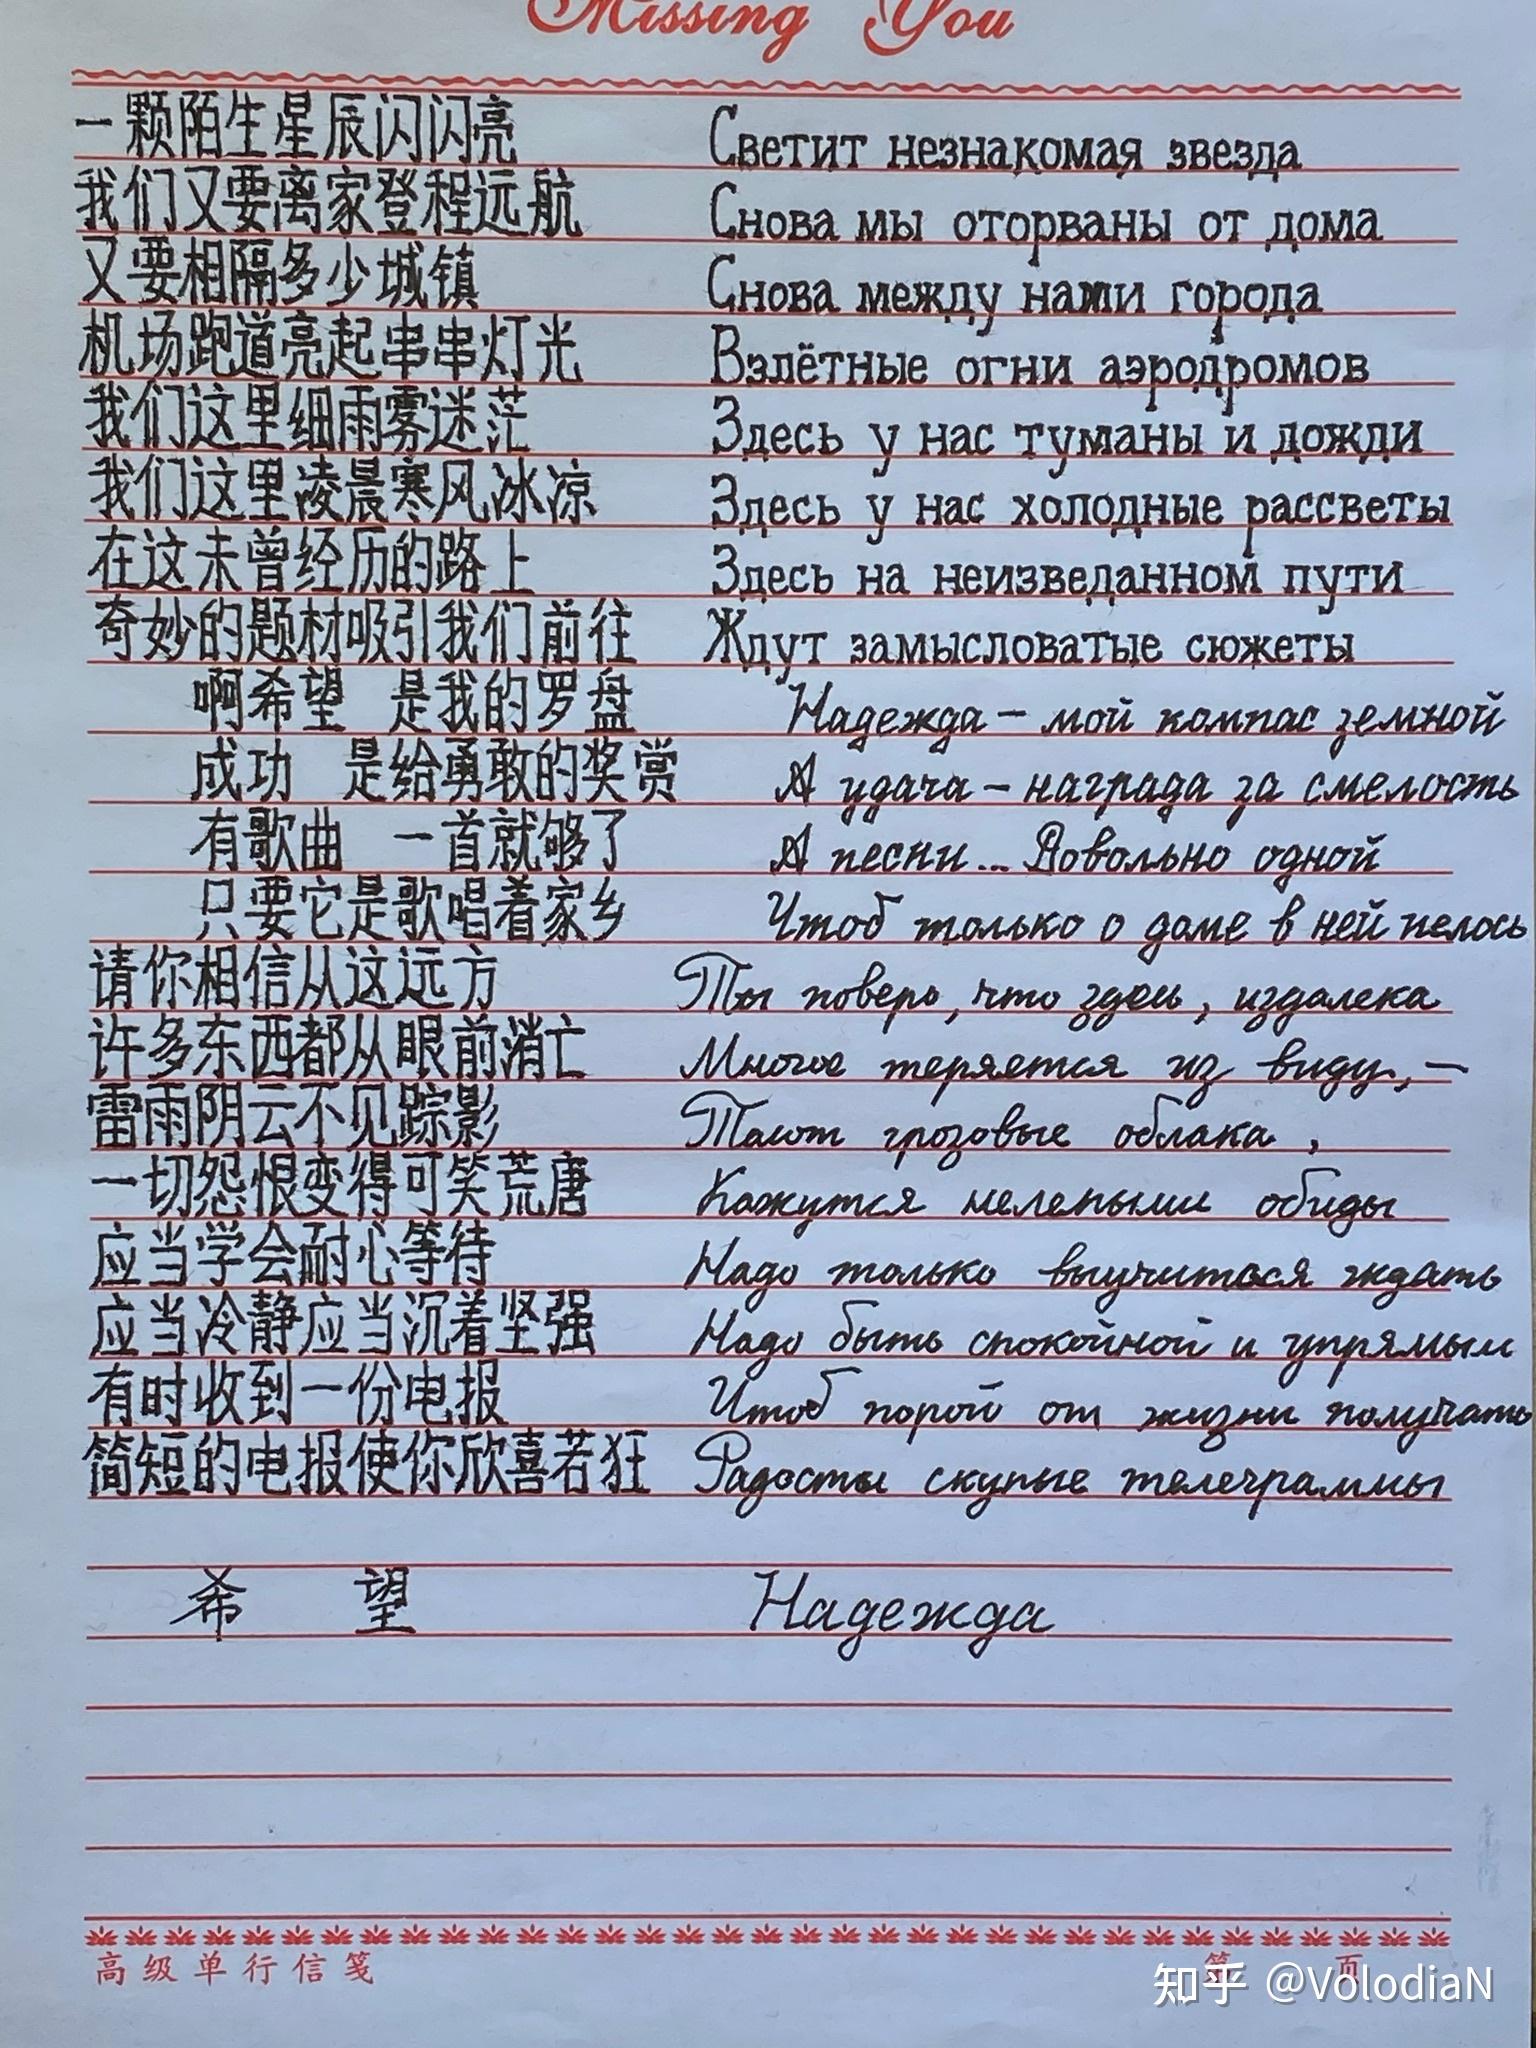 Missing You
一颗陌生星辰闪闪亮 Светит незнакомая звезда
我们又要离家登程远航 Снова мы оторваны от дома
又要相隔多少城镇 Снова между нами города
机场跑道亮起串串灯光 Взлётные огни аэродромов
我们这里细雨雾迷茫 Здесь у нас туманы и дожди
我们这里凌晨寒风冰凉 Здесь у нас холодные рассветы
在这未曾经历的路上 Здесь на неизведанном пути
奇妙的题材吸引我们前往 Ждут замысловатые сюжеты
啊希望 是我的罗盘 Надежда – мой компас земной
成功 是给勇敢的奖赏 А удача – награда за смелость
有歌曲 一首就够了 А песни... Довольно одной
只要它是歌唱着家乡 Чтоб только о доме в ней пелось
请你相信从这远方 Ты поверь, что здесь, издалека
许多东西都从眼前消亡 Многое теряется из виду, –
雷雨阴云不见踪影 Тают грозовые облака,
一切怨恨变得可笑荒唐 Кажутся нелепыми обиды
应当学会耐心等待 Надо только выучиться ждать
应当冷静应当沉着坚强 Надо быть спокойной и упрямым
有时收到一份电报 Чтоб порой от жизни получать
简短的电报使你欣喜若狂 Радости скупые телеграммы
希 望 Надежда
高级单行信笺 第 页
知乎 @VolodiaN